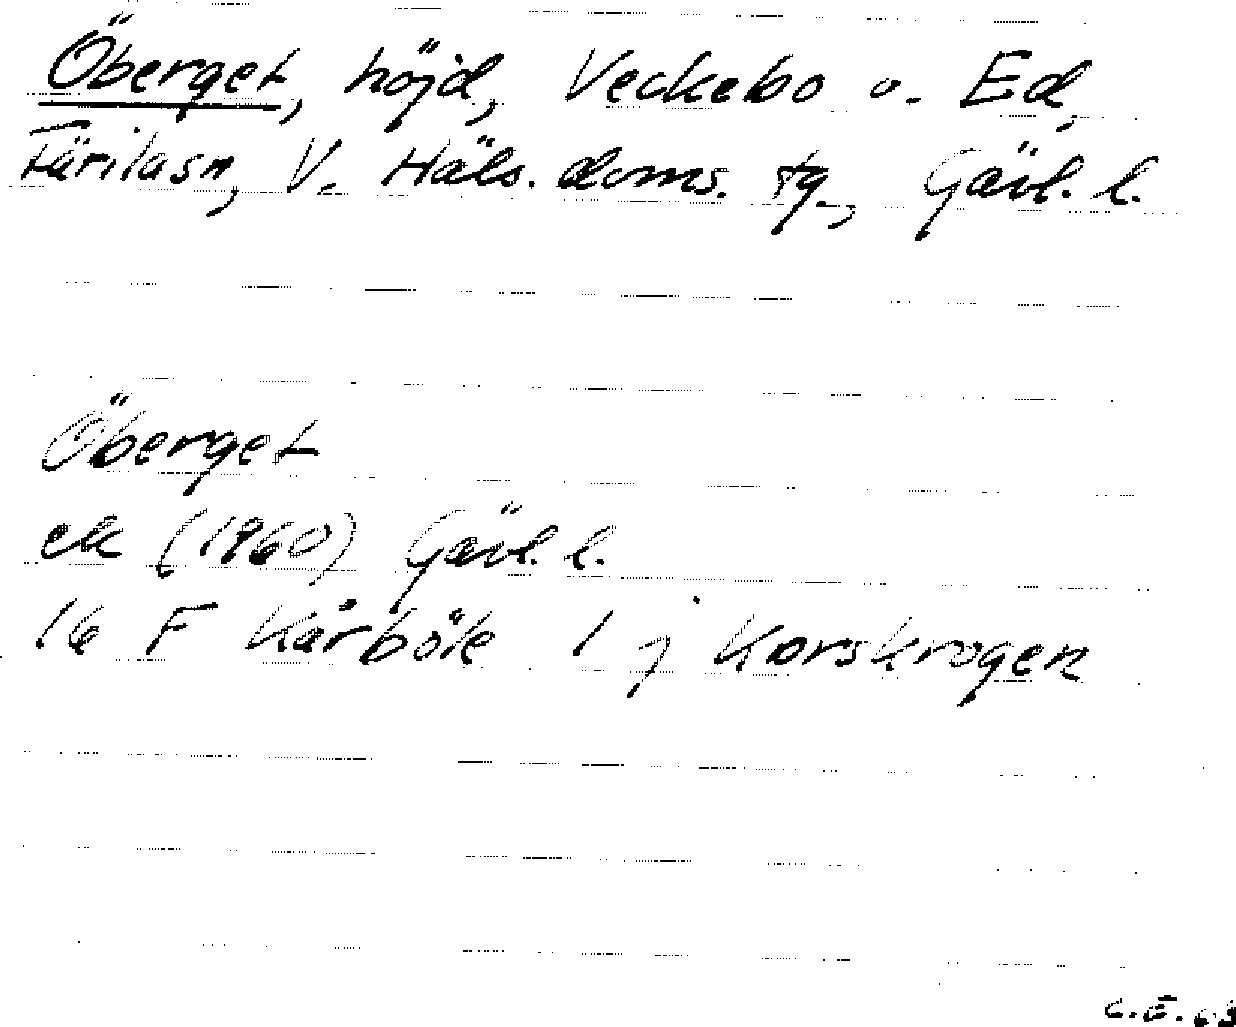 Öberget, höjd, Veckebo o. Ed,
Färilasn, V. Häls. doms. tg., Gävl. l.
Öberget
ek (1960) Gävl. l.
16 F Kårböle 1 j Korskrogen
C.E. 63